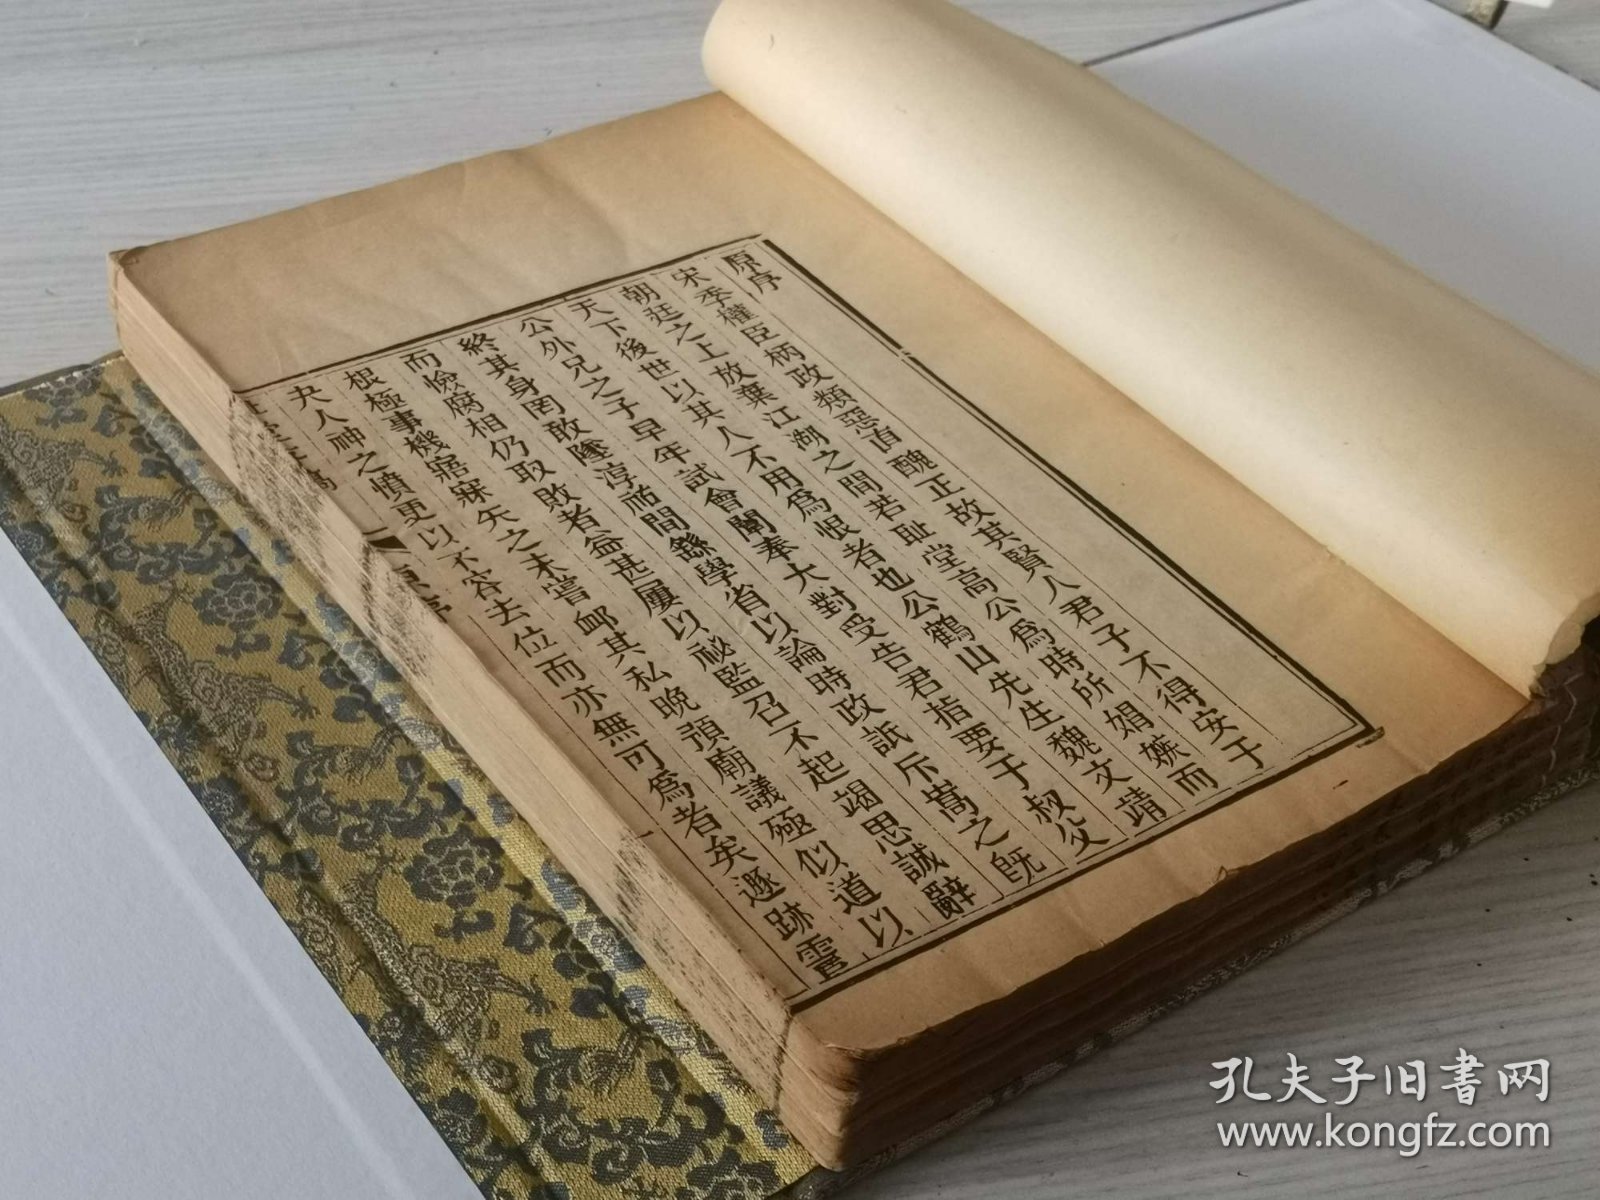 原序
宋季權臣柄政類惡直醜正故其賢人君子不得安于
朝廷之上放棄江湖之間若恥堂高公爲時所娼嫉而
天下後世以其人不用爲恨者也公鶴山先生魏文靖
公外兄之子早年試會闈奉大對受告君指要于叔父
終其身罔敢墜淳祐間繇學省以論時政詆斥嵩之旣
而憸腐相仍取敗者益甚屢以祕監召不起竭思誠辭
根極事機寤寐矢之未嘗䘏其私晚預廟議殛似道以
夬人神之憤更以不容去位而亦無可爲者矣遯跡霅
原序
孔夫子旧書网
www.kongfz.com